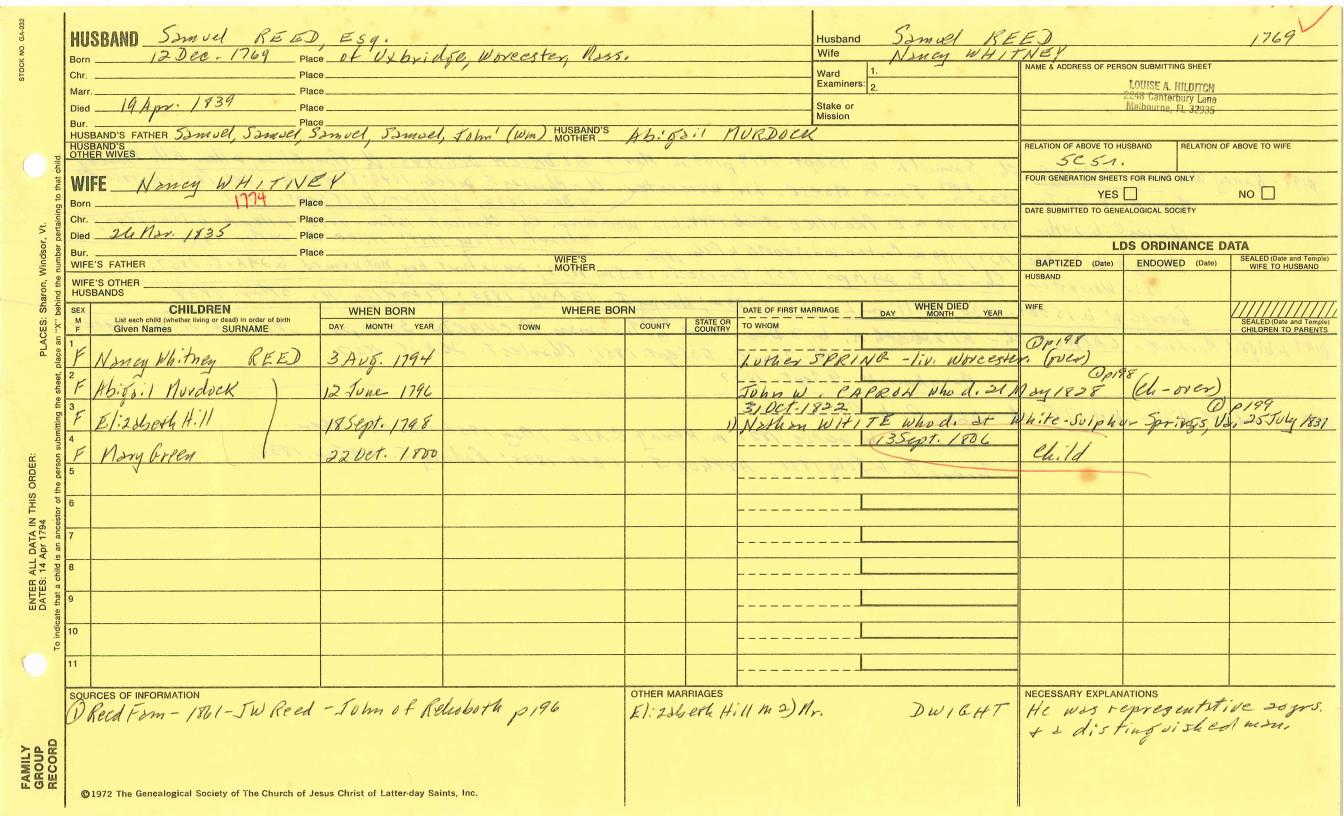 STOCK NO. GA-032
HUSBAND Samuel REED, Esq.
Born 12 Dec. 1769 Place of Uxbridge, Worcester, Mass.
Chr. Place
Marr. Place
Died 19 Apr. 1839 Place
Bur. Place
HUSBAND'S FATHER Samuel, Samuel, Samuel, Samuel, John¹ (Wm) HUSBAND'S MOTHER Abigail MURDOCK
HUSBAND'S OTHER WIVES
Husband Samuel REED 1769
Wife Nancy WHITNEY
Ward Examiners: 1.
2.
Stake or Mission
NAME & ADDRESS OF PERSON SUBMITTING SHEET
LOUISE A. HILDITCH
2248 Canterbury Lane
Melbourne, FL 32935
RELATION OF ABOVE TO HUSBAND RELATION OF ABOVE TO WIFE
5C5r.
FOUR GENERATION SHEETS FOR FILING ONLY
YES NO
DATE SUBMITTED TO GENEALOGICAL SOCIETY
WIFE Nancy WHITNEY
1774
Born Place
Chr. Place
Died 26 Mar. 1835 Place
Bur. Place
WIFE'S FATHER WIFE'S MOTHER
WIFE'S OTHER HUSBANDS
LDS ORDINANCE DATA
BAPTIZED (Date) ENDOWED (Date) SEALED (Date and Temple) WIFE TO HUSBAND
HUSBAND
WIFE
SEALED (Date and Temple) CHILDREN TO PARENTS
SEX M F CHILDREN WHEN BORN WHERE BORN DATE OF FIRST MARRIAGE WHEN DIED
List each child (whether living or dead) in order of birth
Given Names SURNAME DAY MONTH YEAR TOWN COUNTY STATE OR COUNTRY TO WHOM DAY MONTH YEAR
1 ① p198
F Nancy Whitney REED 3 Aug. 1794 Luther SPRING - liv. Worcester. (over)
2 ① p198
F Abigail Murdock 12 June 1796 John W. CAPRON who d. 21 May 1828 (Ch-over)
3 31 Oct. 1822 ① p199
F Elizabeth Hill 18 Sept. 1798 1) Nathan WHITE who d. at White-Sulphur Springs, Va, 25 July 1831
4 13 Sept. 1806
F Mary Green 22 Oct. 1800 Child
5
6
7
8
9
10
11
SOURCES OF INFORMATION
① Reed Fam - 1861 - JW Reed - John of Rehoboth p196
OTHER MARRIAGES
Elizabeth Hill m 2) Mr. DWIGHT
NECESSARY EXPLANATIONS
He was representative 20 yrs.
+ a distinguished man.
©1972 The Genealogical Society of The Church of Jesus Christ of Latter-day Saints, Inc.
FAMILY GROUP RECORD
ENTER ALL DATA IN THIS ORDER:
DATES: 14 Apr 1794
PLACES: Sharon, Windsor, Vt.
To indicate that a child is an ancestor of the person submitting the sheet, place an "X" behind the number pertaining to that child.